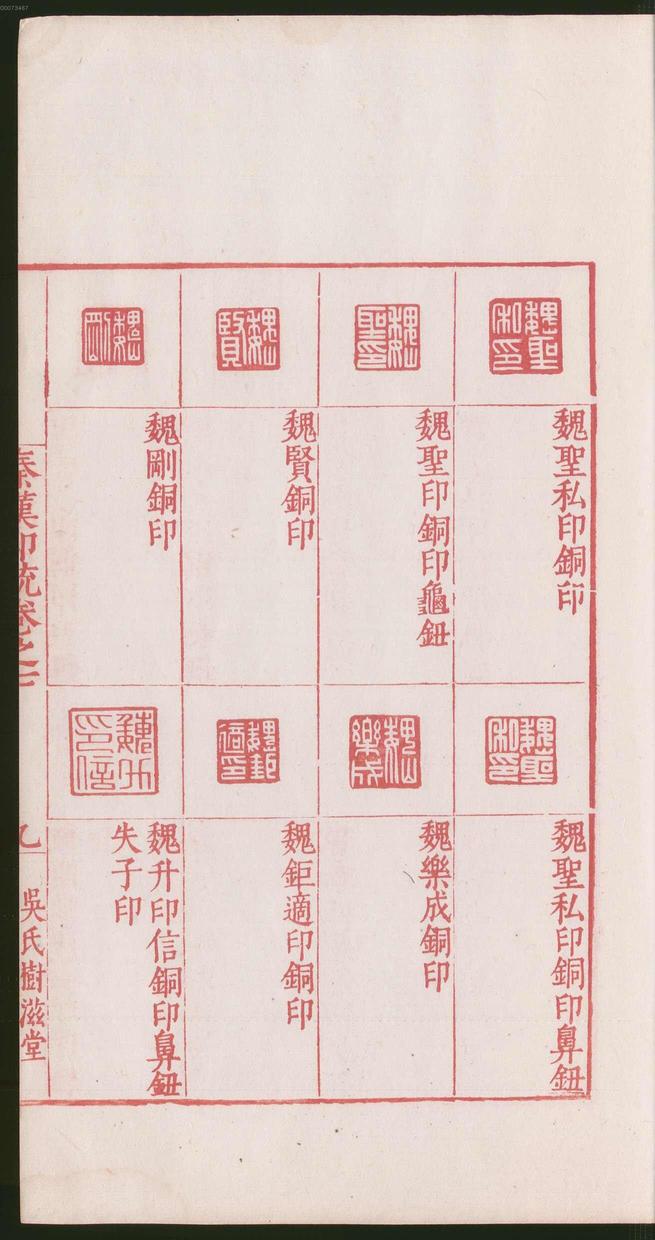 00073467
魏聖私印
魏聖私印銅印
魏聖印
魏聖印銅印龜鈕
魏賢
魏賢銅印
魏剛
魏剛銅印
魏聖私印
魏聖私印銅印鼻鈕
魏樂成
魏樂成銅印
魏鉅適印銅印
魏升印信
魏升印信銅印鼻鈕
失子印
秦漢印統卷之七
九
吳氏樹滋堂